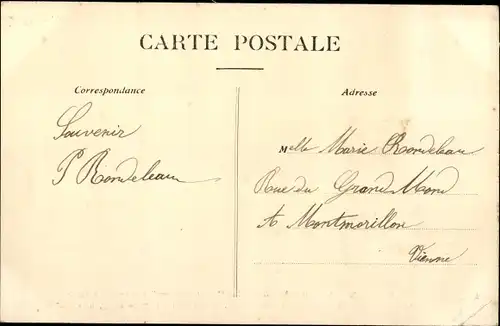 CARTE POSTALE
Correspondance
Adresse
Souvenir
P Rondeleau
Melle Marie Rondeleau
Rue du Grand Mond
A Montmorillon
Vienne